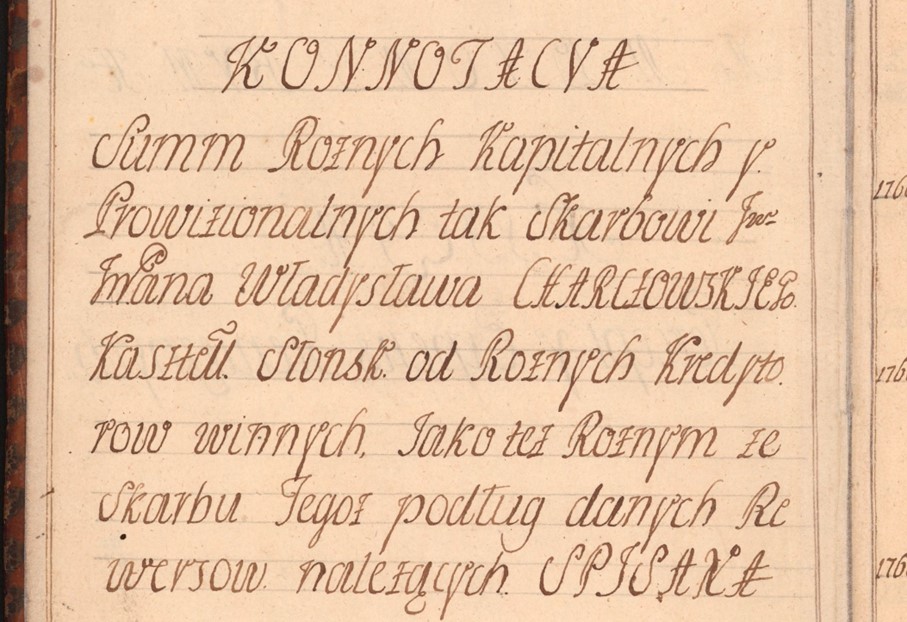 KONNOTACYA
Summ Rożnych Kapitalnych y
Prowizionalnych tak Skarbowi Jw
Jmpana Władysława CHARCZOWSKIEGo
Kasztell. Słonsk. od Rożnych Kredyto
row winnych, Jako też Rożnym ze
Skarbu Jegoż podług danych Re
wersow należących SPISANA